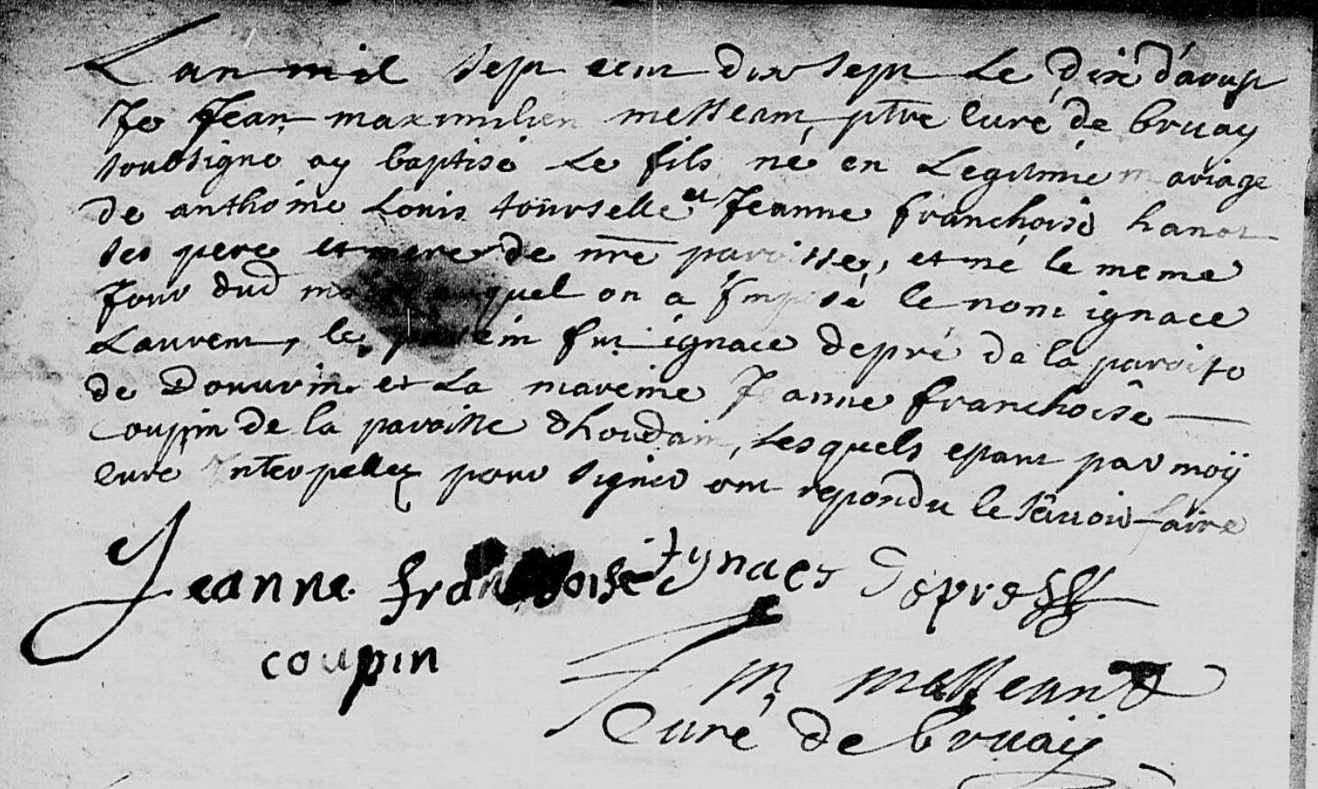 L'an mil sept cent dix sept le dix d'aoust
Je Jean maximilien messean, ptre curé de bruay
soubsigné ay baptisé le fils né en Legitime mariage
de anthoine Louis tourselle et Jeanne franchoise hanot
ses pere et mere de nre paroisse, et né le meme
jour dud auquel on a Imposé le nom ignace
Laurent, le parein fut ignace depré de la paroisse
de Douvrin et La mareine Jeanne franchoise
coupin de la paroisse d'houdain, lesquels estant par moÿ
curé Interpellez pour signer ont repondu le scavoir faire
Jeanne franchoise ignaes depres
coupin
J m messeant
Curé de bruaÿ